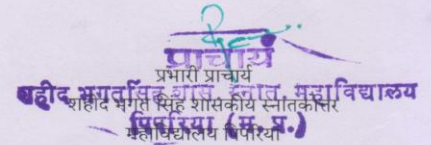 प्राचार्य
प्रभारी प्राचार्य
शहीद भगतसिंह शास. स्नात. महाविद्यालय
शहीद भगत सिंह शासकीय स्नातकोत्तर
पिपरिया (म. प्र.)
महाविद्यालय पिपरिया